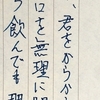 、君をからか
口を無理に開
う飲んでも理